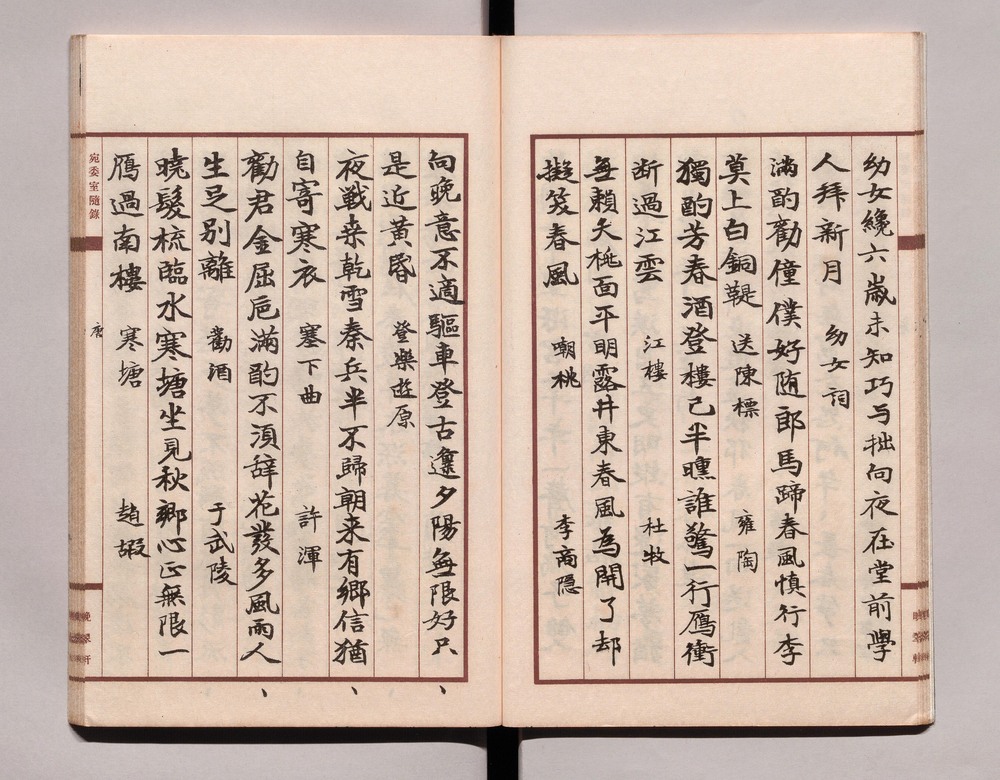 幼女纔六歳未知巧与拙向夜在堂前學
人拜新月 幼女詞
滿酌勸僮僕好随郎馬蹄春風慎行李
莫上白銅鞮 送陳標 雍陶
獨酌芳春酒登樓已半曛誰驚一行鴈衝
断過江雲 江樓 杜牧
無賴夭桃面平明露井東春風為開了却
擬笑春風 嘲桃 李商隱
向晚意不適驅車登古邍夕陽無限好只
是近黃昏 登樂遊原
夜戰桒乾雪秦兵半不歸朝来有鄉信猶
自寄寒衣 塞下曲 許渾
勸君金屈卮滿酌不湏辞花發多風雨人
生足別離 勸酒 于武陵
曉髮梳臨水寒塘坐見秋鄉心正無限一
鴈過南樓 寒塘 趙嘏
唐
宛委室隨錄